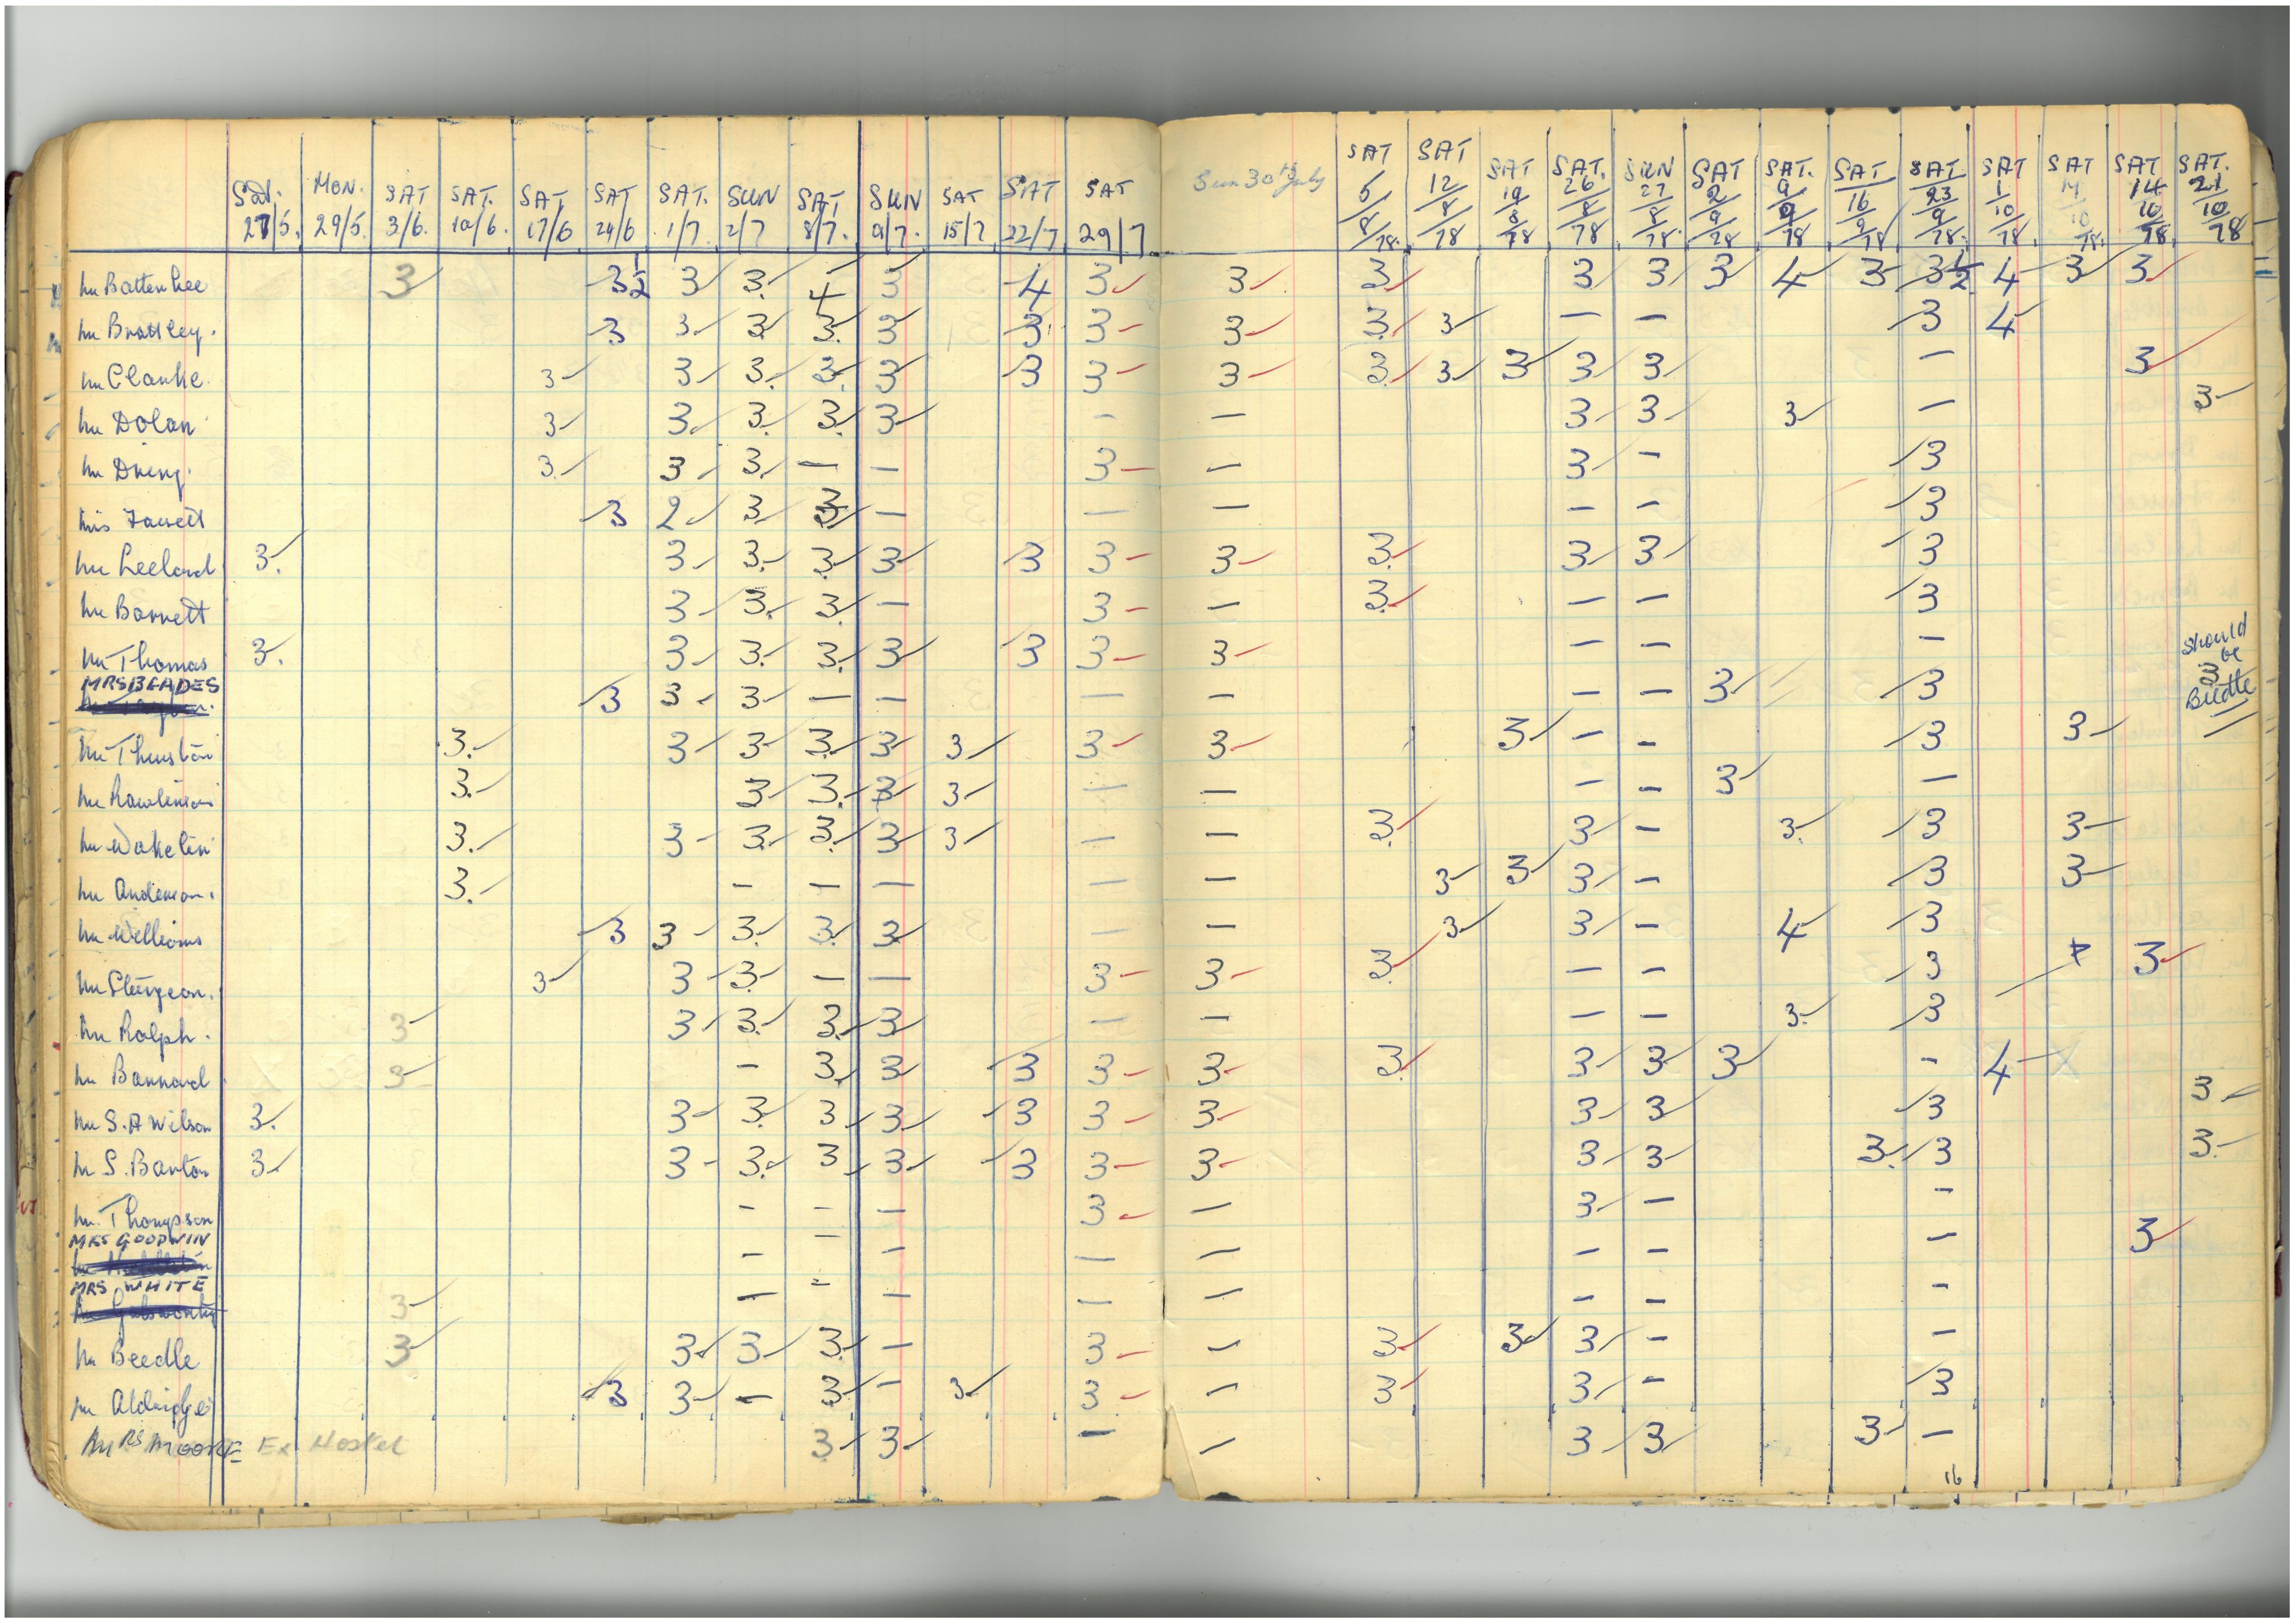 Sat. 27/5. MON. 29/5. SAT 3/6. SAT. 10/6. SAT 17/6 SAT 24/6 SAT. 1/7. SUN 2/7 SAT 8/7. SUN 9/7. SAT 15/7 SAT 22/7 SAT 29/7 Sun 30th July SAT 5/8/78. SAT 12/8/78 SAT 19/8/78 SAT. 26/8/78 SUN 27/8/78. SAT 2/9/78 SAT. 9/9/78 SAT 16/9/78 SAT 23/9/78. SAT 1/10/78 SAT 10/78. SAT 14/10/78. SAT. 21/10/78
Mr Battenbee 3 3 1/2 3 3 4 3 4 3 3 3 3 3 3 4 3 3 1/2 4 3 3
Mr Brattley. 3 3 3 3 3 3 3 3 3 3 1 1 3 4
Mr Clarke 3 3 3 3 3 3 3 3 3 3 3 3 3 1 3
Mr Dolan 3 3 3 3 3 1 1 3 3 3 1 3
Mr Dring. 3 3 3 1 1 3 1 3 1 3
Mis Fawett 3 2 3 3 1 1 1 1 1 3
Mr Leeland 3. 3 3 3 3 3 3 3 3 3 3 3
Mr Barrett 3 3 3 1 3 1 3 1 1 3
Mr Thomas 3. 3 3 3 3 3 3 3 1 1 1
should be 3 Beedle
MRS BEADES 3 3 3 1 1 1 1 1 1 3 3
Mr Thurston 3 3 3 3 3 3 3 3 3 1 1 3 3
Mr Rawlinson 3 3 3 3 3 1 1 1 1 3 1
Mr Wakelin 3 3 3 3 3 3 1 1 3 3 1 3 3 3
Mr Anderson. 3 1 1 1 1 1 3 3 3 1 3 3
Mr Williams 3 3 3 3 3 1 1 3 3 1 4 3
Mr Sturgeon. 3 3 3 1 1 3 3 3 1 1 3 4 3
Mr Ralph. 3 3 3 3 3 1 1 1 1 3 3
Mr Barnard 3 1 3 3 3 3 3 3 3 3 3 1 4
Mr S.A Wilson 3. 3 3 3 3 3 3 3 3 3 3 3
Mr S. Barton 3 3 3 3 3 3 3 3 3 3 3 3 3
Mr. Thompson 1 1 1 3 1 3 1 1
MRS GOODWIN 1 1 1 1 1 1 1 1 3
MRS WHITE 3 1 1 1 1 1 1 1
Mr Beedle 3 3 3 3 1 3 1 3 3 3 1 1
Mr Aldridge 3 3 1 3 1 3 3 1 3 3 1 3
Mrs MOORE Ex Hostel 3 3 1 1 3 3 3 1
16